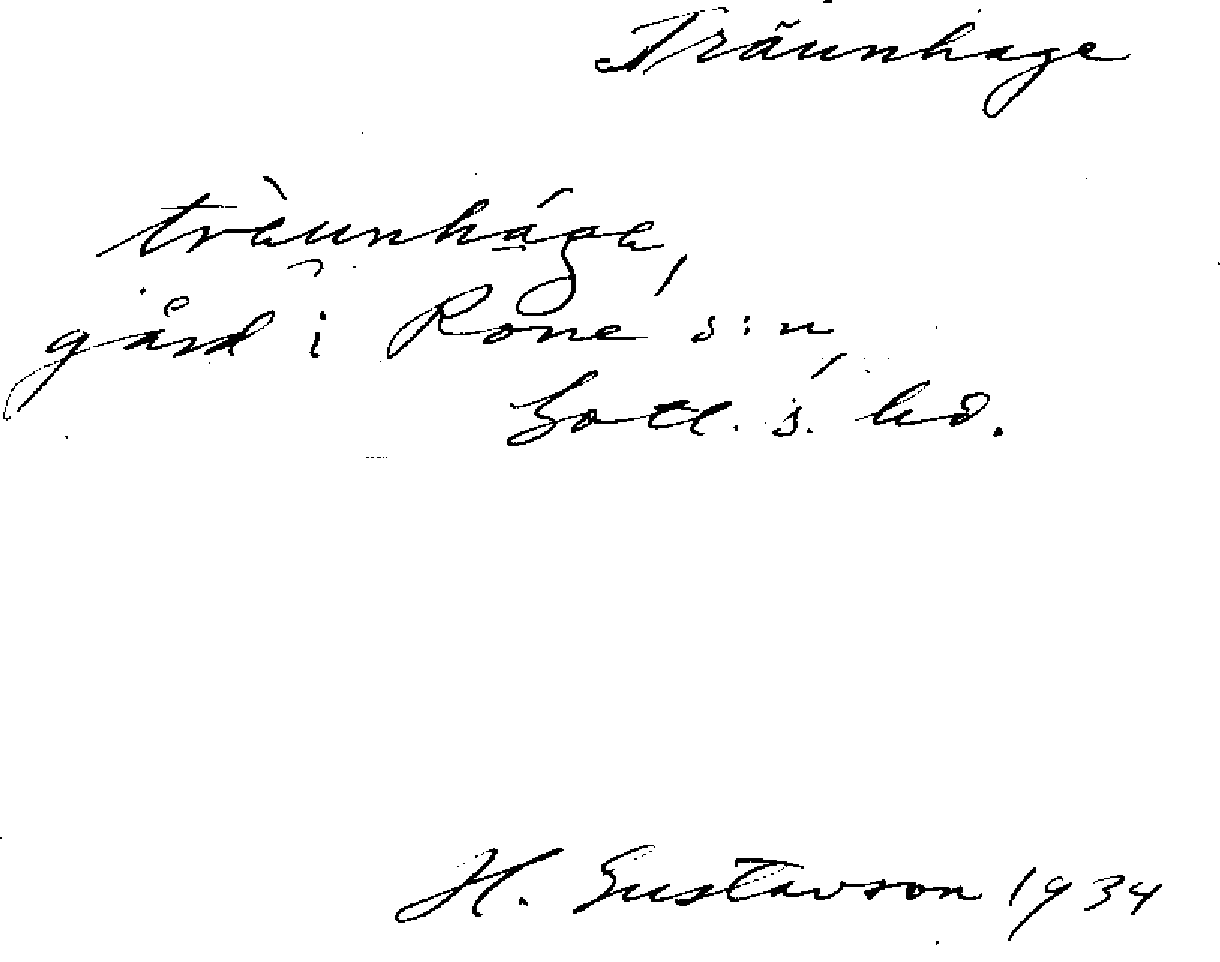 Träunhage
träunhága,
gård i Rone s:n,
Gotl. s. hd.
H. Gustavson 1934